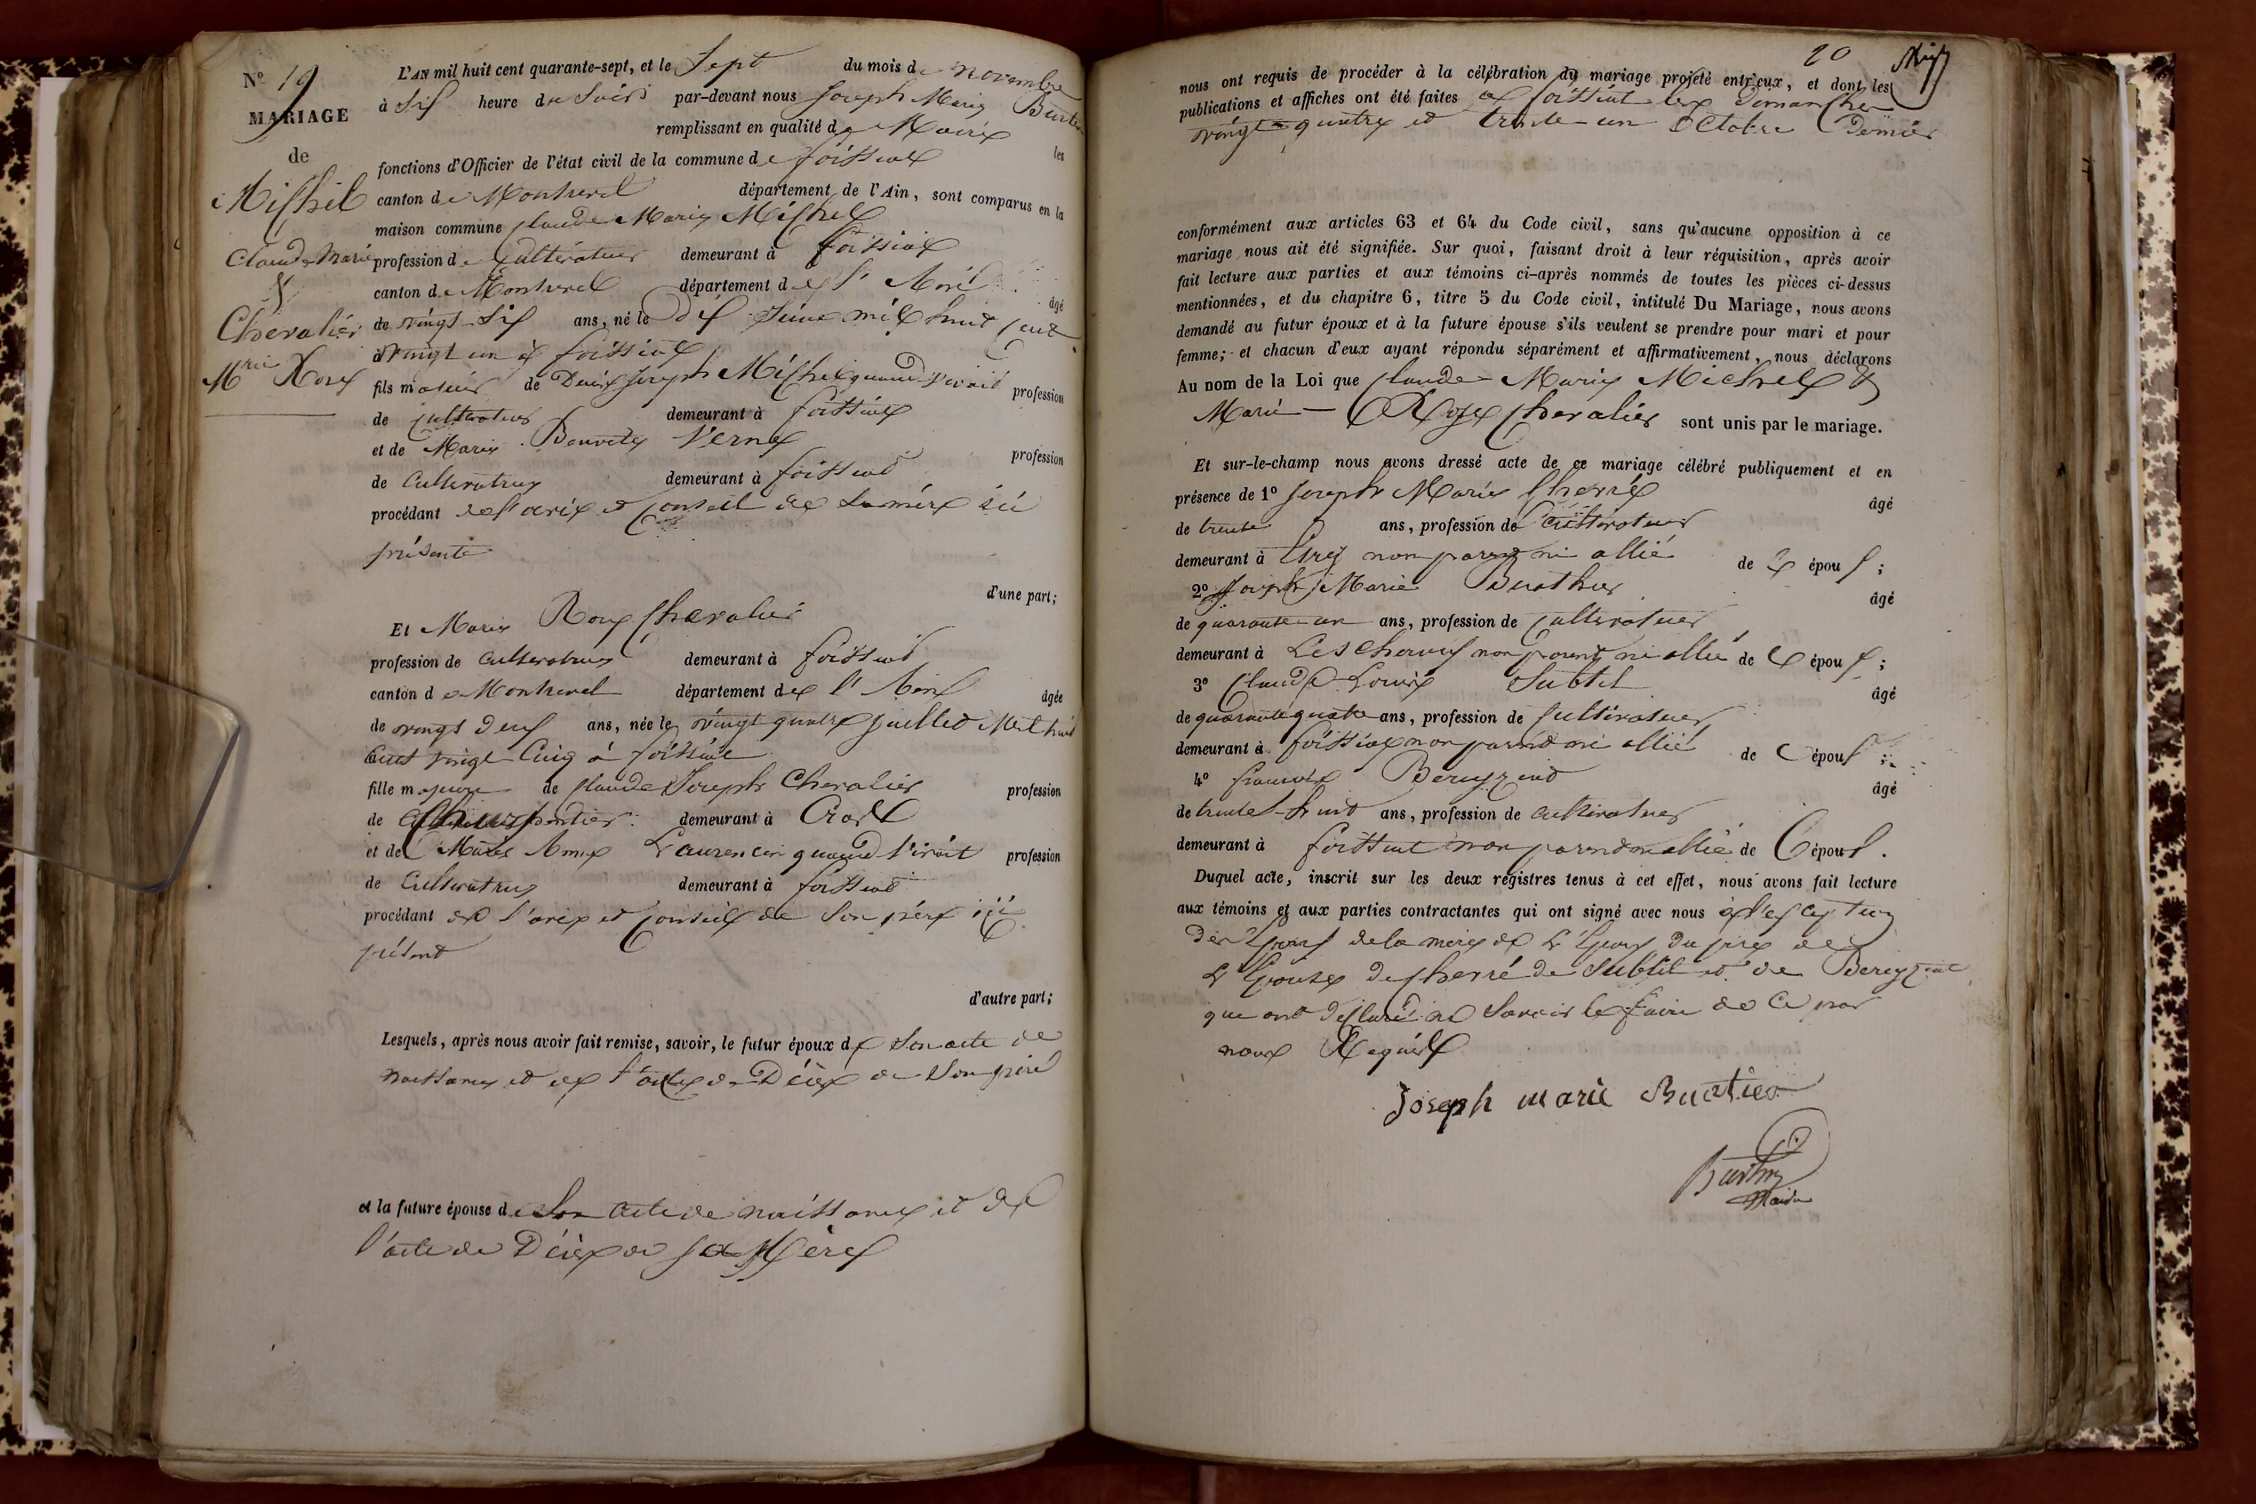 N° 19
MARIAGE
de
Michel
Claude Marie
&
Chevalier
Mrie Rose
L'AN mil huit cent quarante-sept, et le Sept du mois de novembre
à Six heure du Soir par-devant nous Joseph Marie Burtier
remplissant en qualité de Maire les
fonctions d'Officier de l'état civil de la commune de foissiat
canton de Montrevel département de l'Ain, sont comparus en la
maison commune Claude Marie Michel
profession de Cultivateur demeurant à foissiat
canton de Montrevel département de l'Ain âgé
de vingt Six ans, né le Dix huit cent
vingt un à foissiat
fils majeur de Joseph Michel quand vivait profession
de Cultivateur demeurant à foissiat
et de Marie Verne profession
de Cultivatrice demeurant à foissiat
procédant de l'avis et Conseil de Sa mère ici
présente
d'une part;
Et Marie Rose Chevalier
profession de Cultivatrice demeurant à foissiat
canton de Montrevel département de l'Ain âgée
de vingt Deux ans, née le vingt quatre juillet Mil huit
Cent vingt Cinq à foissiat
fille majeure de Claude Joseph Chevalier profession
de Charpentier demeurant à Cras
et de Marie Anne Laurencin quand vivait profession
de Cultivatrice demeurant à foissiat
procédant de l'avis et Conseil de Son père ici
présent
d'autre part;
Lesquels, après nous avoir fait remise, savoir, le futur époux de Son acte de
naissance et de l'acte de Décès de Son père
et la future épouse de Son acte de naissance et de
l'acte de Décès de sa Mère
20
nous ont requis de procéder à la célébration du mariage projeté entr'eux, et dont les
publications et affiches ont été faites à foissiat les Dimanches
vingt-quatre et trente-un Octobre Dernier
conformément aux articles 63 et 64 du Code civil, sans qu'aucune opposition à ce
mariage nous ait été signifiée. Sur quoi, faisant droit à leur réquisition, après avoir
fait lecture aux parties et aux témoins ci-après nommés de toutes les pièces ci-dessus
mentionnées, et du chapitre 6, titre 5 du Code civil, intitulé Du Mariage, nous avons
demandé au futur époux et à la future épouse s'ils veulent se prendre pour mari et pour
femme; et chacun d'eux ayant répondu séparément et affirmativement, nous déclarons
Au nom de la Loi que Claude Marie Michel &
Marie Rose Chevalier sont unis par le mariage.
Et sur-le-champ nous avons dressé acte de ce mariage célébré publiquement et en
présence de 1° Joseph Marie Cherré âgé
de trente ans, profession de Cultivateur
demeurant à non parent ni allié de époux;
2° Joseph Marie Burthier âgé
de quarante un ans, profession de Cultivateur
demeurant à Lescheroux non parent ni allié de époux;
3° Claude Louis Subtil âgé
de quarante quatre ans, profession de Cultivateur
demeurant à foissiat non parent ni allié de époux;
4° francois Bereyziat âgé
de trente huit ans, profession de Cultivateur
demeurant à foissiat non parent ni allié de époux.
Duquel acte, inscrit sur les deux registres tenus à cet effet, nous avons fait lecture
aux témoins et aux parties contractantes qui ont signé avec nous à l'exception
des Epoux de la mère de l'Epoux du père de
l'Epouse de Cherré de Subtil et de Bereyziat
que ont déclaré ne Savoir le faire de Ce par
nous Requis
Joseph marie Buatier
Burthier
Maire